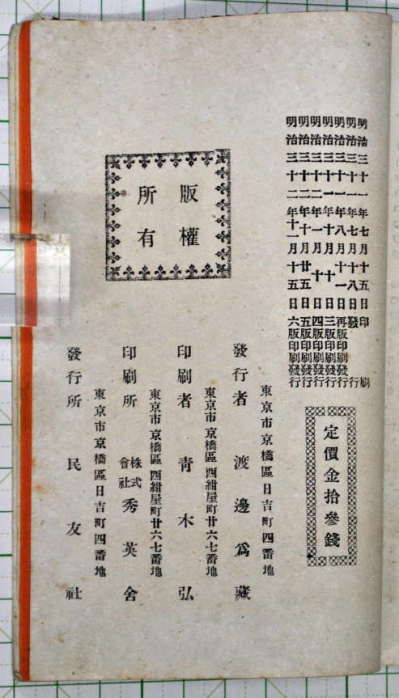 明治三十一年七月十五日印刷
明治三十一年七月十八日發行
明治三十一年八月十一日再版印刷發行
明治三十一年十月十日三版印刷發行
明治三十二年一月十日四版印刷發行
明治三十二年十月廿五日五版印刷發行
明治三十二年十一月十五日六版印刷發行
定價金拾參錢
版權
所有
東京市京橋區日吉町四番地
發行者 渡邊爲藏
東京市京橋區西紺屋町廿六七番地
印刷者 青木弘
東京市京橋區西紺屋町廿六七番地
印刷所 株式會社 秀英舍
東京市京橋區日吉町四番地
發行所 民友社